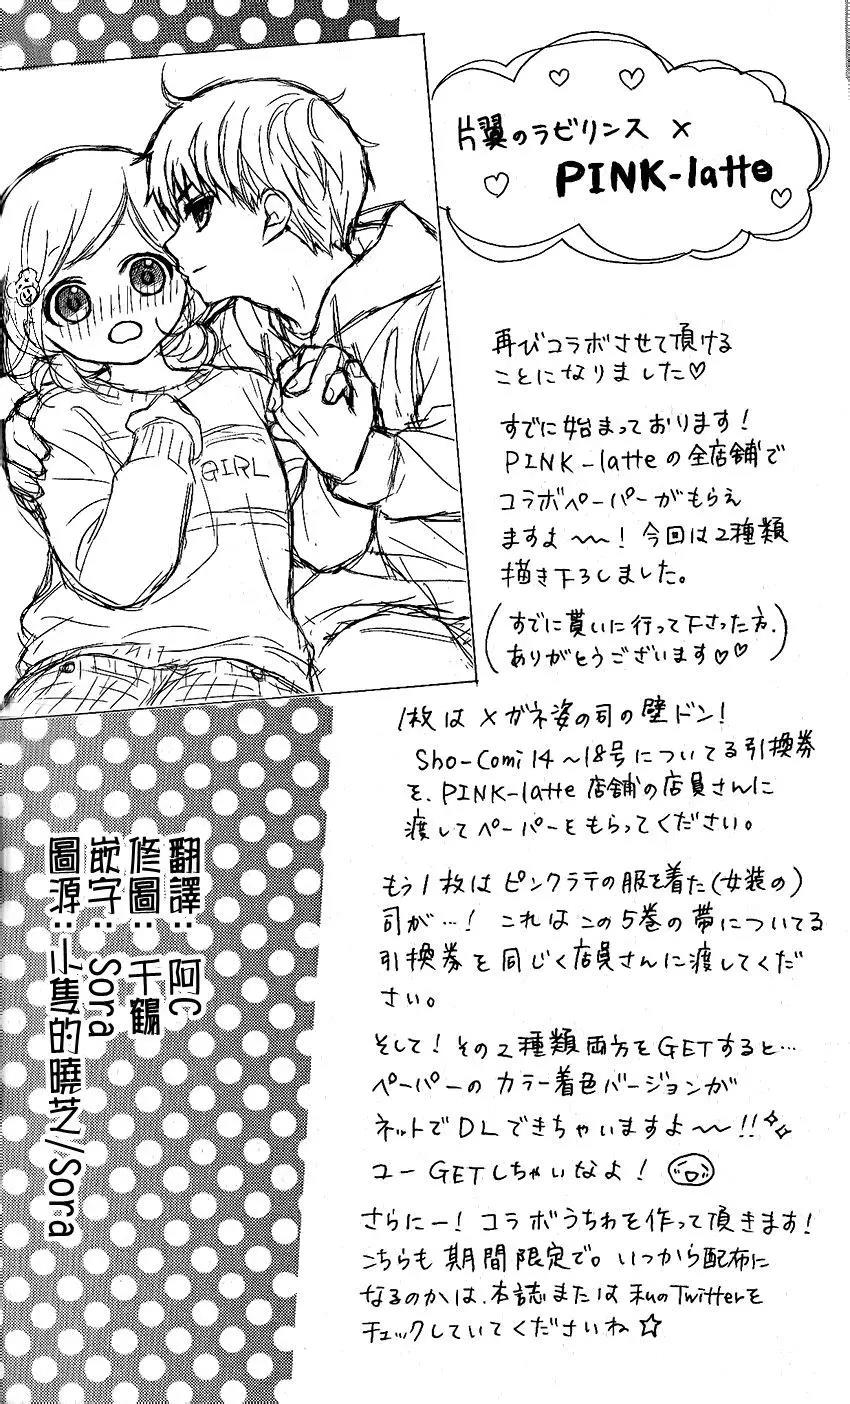 片翼のラビリンス ×
PINK-latte
GIRL
再びコラボさせて頂ける
ことになりました♡
すでに始まっております!
PINK-latteの全店舗で
コラボペーパーがもらえ
ますよ〜〜!今回は2種類
描き下ろしました。
(すでに貰いに行って下さった方、
ありがとうございます♡♡)
1枚はメガネ姿の司の壁ドン!
Sho-Comi14〜18号についてる引換券
を、PINK-latte店舗の店員さんに
渡してペーパーをもらってください。
もう1枚はピンクラテの服を着た(女装の)
司が…! これはこの5巻の帯についてる
引換券を同じく店員さんに渡してくだ
さい。
そして!その2種類両方をGETすると…
ペーパーのカラー着色バージョンが
ネットでDLできちゃいますよ〜〜!!
ユーGETしちゃいなよ!
さらにー!コラボうちわを作って頂きます!
こちらも期間限定で。いつから配布に
なるのかは、本誌または私のTwitterを
チェックしていてくださいね☆
翻譯:阿C
修圖:千鶴
嵌字:Sora
圖源:小隻的曉芝//Sora